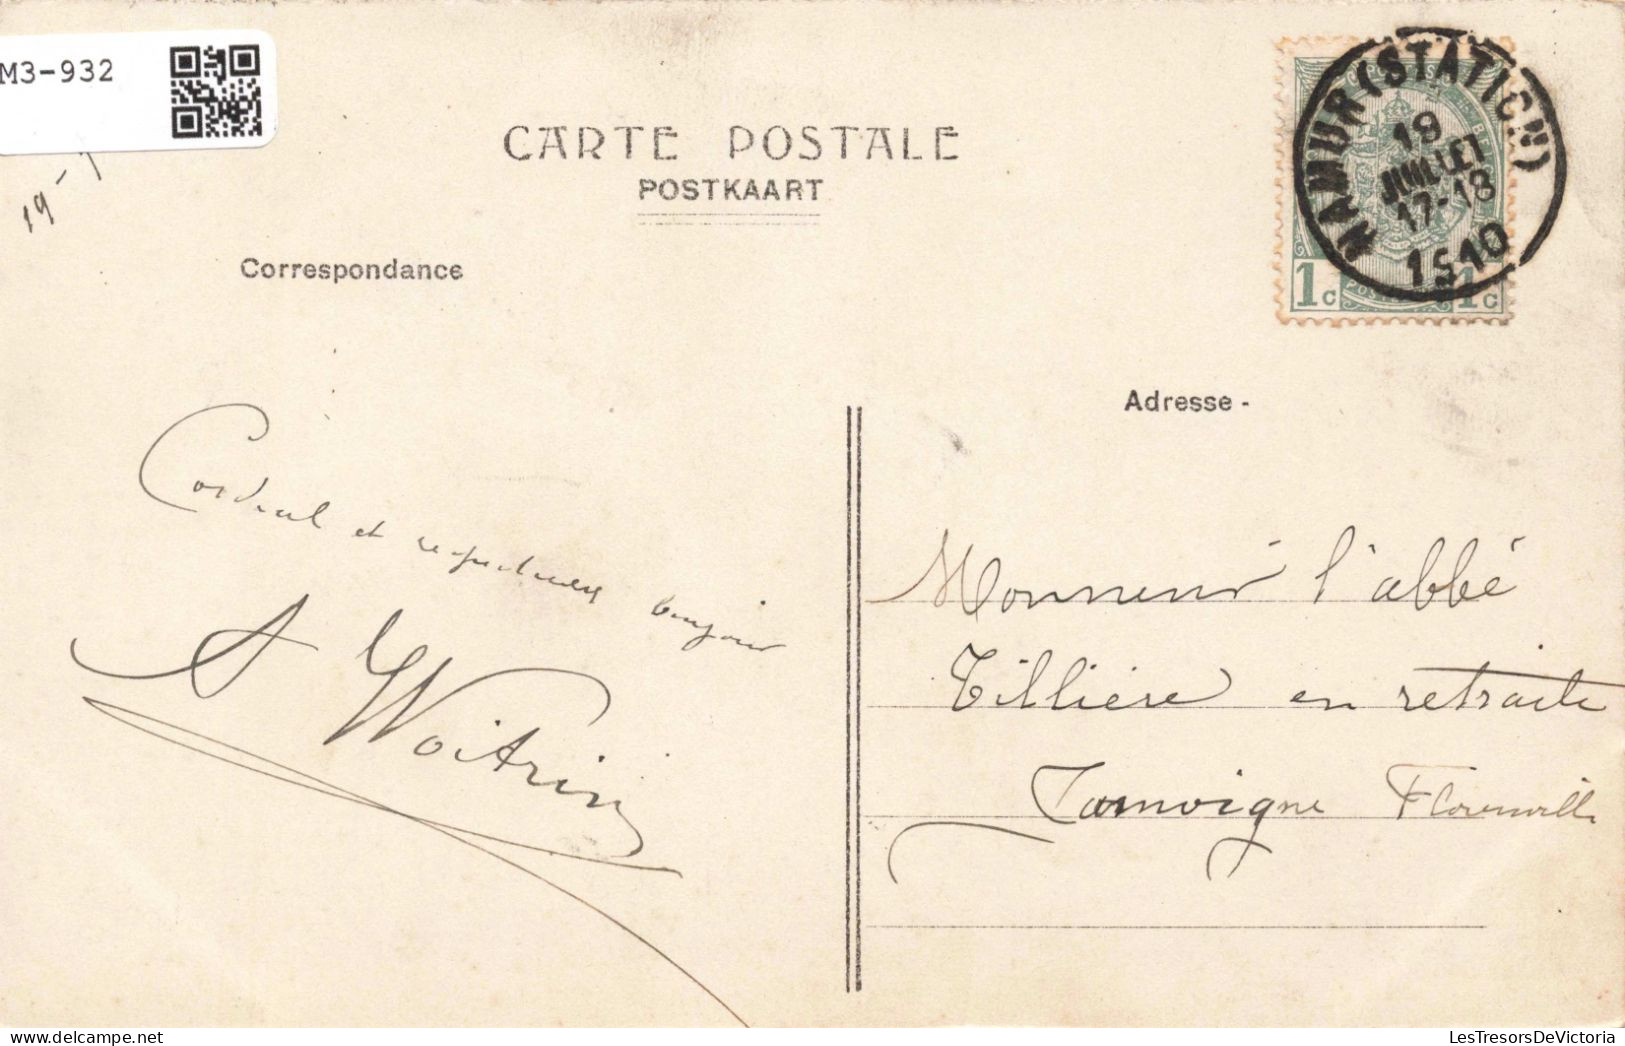 M3-932
19-7
CARTE POSTALE
POSTKAART
Correspondance
NAMUR (STATION)
19
JUILLET
17-18
1910
1c 1c
Adresse -
Cordial et respectueux bonjour
A Woitrin
Monsieur l'abbé
Tillière en retraite
Jamoigne Florenville
LesTresorsDeVictoria